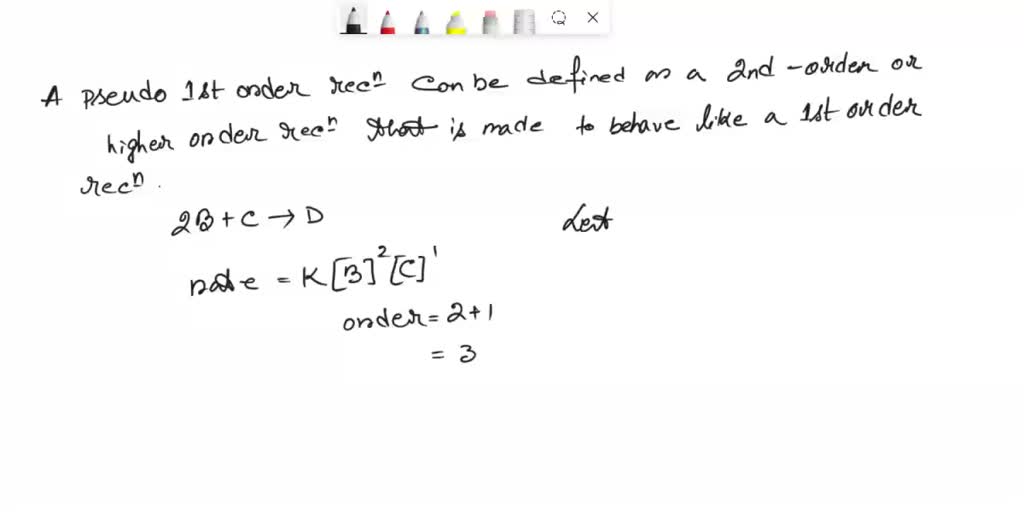 A pseudo 1st order recⁿ can be defined as a 2nd-order or
higher order recⁿ that is made to behave like a 1st order
recⁿ.
2B + C → D
Let
rate = K[B]²[C]¹
order = 2+1
= 3